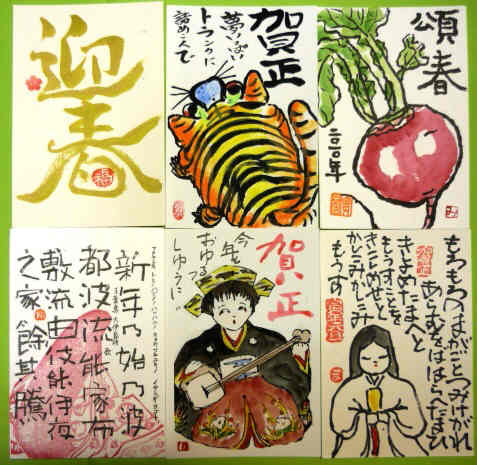 迎春
賀正
夢いっぱい
トランクに
詰めこんで
頌春
二〇一〇年
新年乃始乃波
都波流能家布
敷流由伎能伊夜
之家餘其騰
賀正
もろもろのまがごとつみけがれ
あらむをばはらへたまひ
きよめたまへと
もうすことを
きこしめせと
かしこみかしこみ
もうす